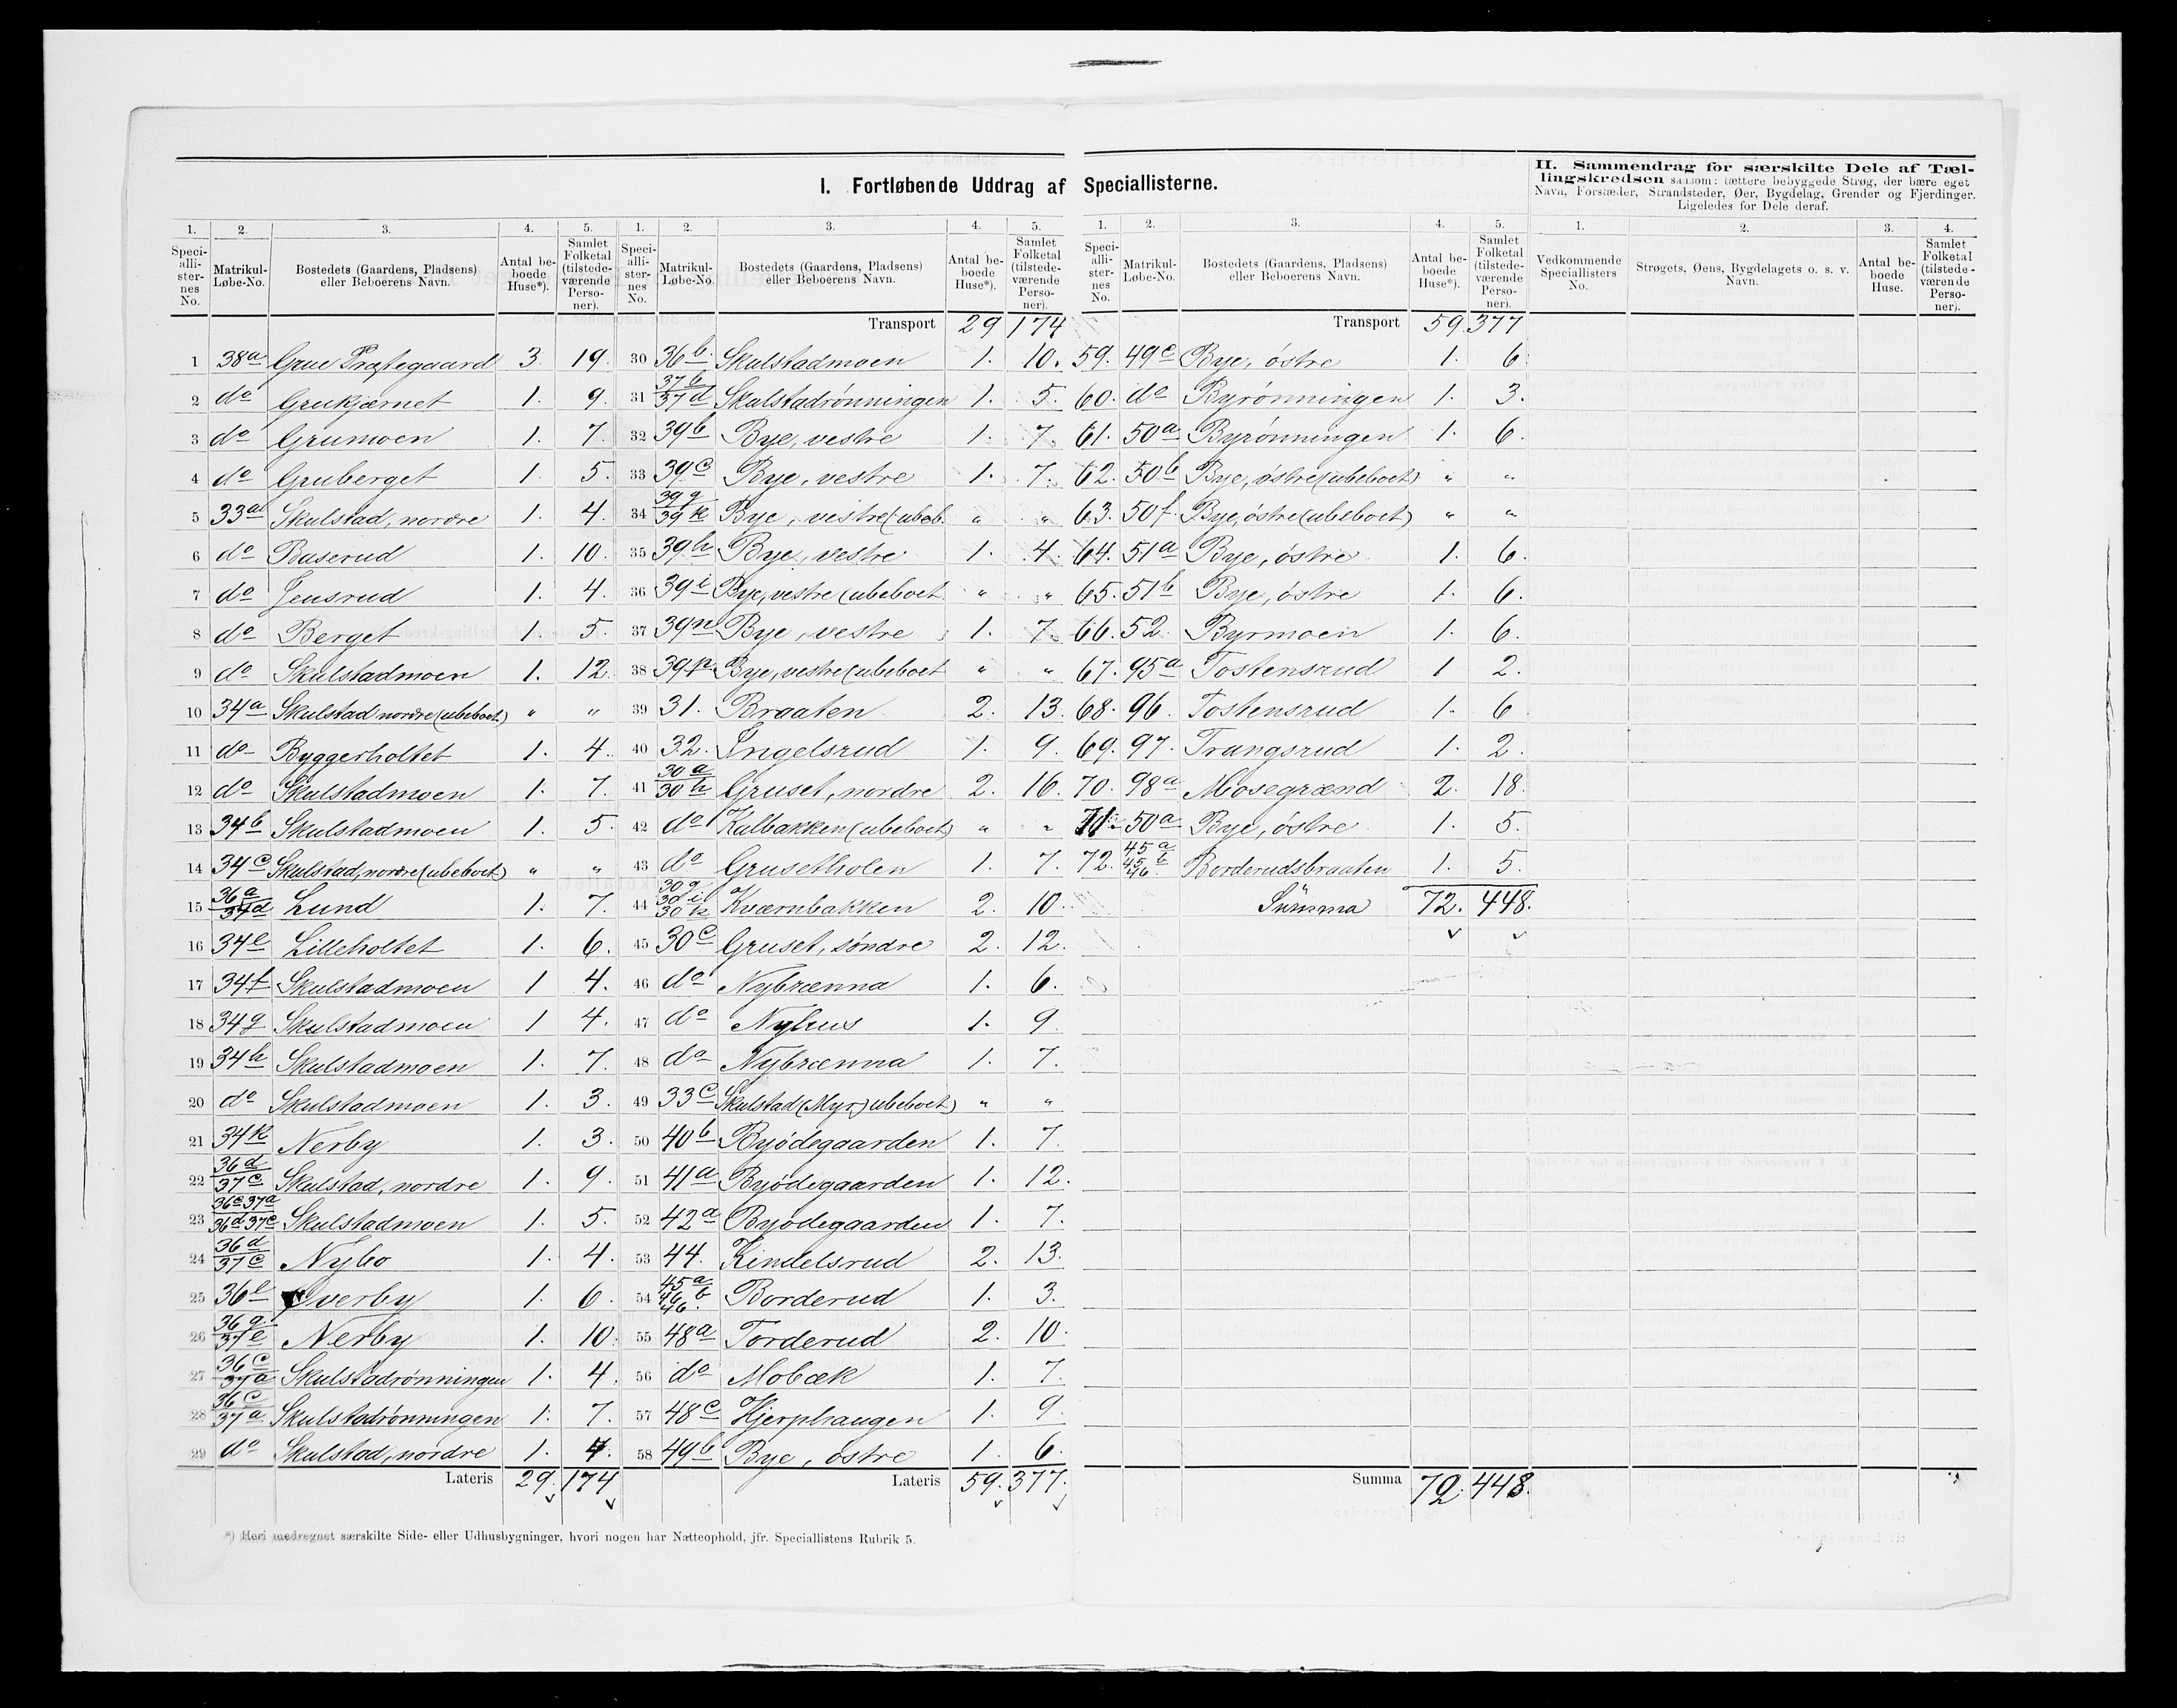 I. Fortløbende Uddrag af Speciallisterne.
II. Sammendrag for særskilte Dele af Tællingskredsen saasom: tættere bebyggede Strøg, der bære eget Navn, Forstæder, Strandsteder, Øer, Bygdelag, Grender og Fjerdinger. Ligeledes for Dele deraf.
1. 2. 3. 4. 5.
Speciallisternes No. Matrikul-Løbe-No. Bostedets (Gaardens, Pladsens) eller Beboerens Navn. Antal beboede Huse*). Samlet Folketal (tilstedeværende Personer).
1 38a Grue Præstegaard 3. 19.
2 do Grukjærnet 1. 9.
3 do Grumoen 1. 7.
4 do Gruberget 1. 5.
5 33a Skulstad, nordre 1. 4.
6 do Baserud 1. 10.
7 do Jensrud 1. 4.
8 do Berget 1. 5.
9 do Skulstadmoen 1. 12.
10 34a Skulstad nordre (ubeboet) " "
11 do Byggerholtet 1. 4.
12 do Skulstadmoen 1. 7.
13 34b Skulstadmoen 1. 5.
14 34c Skulstad, nordre (ubeboet) " "
15 36a 37d Lund 1. 7.
16 34e Lilleholtet 1. 6.
17 34f Skulstadmoen 1 4.
18 34g Skulstadmoen 1 4.
19 34h Skulstadmoen 1. 7.
20 do Skulstadmoen 1. 3.
21 34k Nerby 1. 3.
22 36d 37c Skulstad, nordre 1. 9.
23 36c 37a 36d 37c Skulstadmoen 1. 5.
24 36d 37c Nybo 1. 4.
25 36e Overby 1. 6.
26 36g 37e Nerby 1. 10.
27 36c 37a Skulstadrønningen 1. 4.
28 36c 37a Skulstadrønningen 1. 7.
29 do Skulstad, nordre 1. 4.
Lateris 29. 174
1. 2. 3. 4. 5.
Speciallisternes No. Matrikul-Løbe-No. Bostedets (Gaardens, Pladsens) eller Beboerens Navn. Antal beboede Huse*). Samlet Folketal (tilstedeværende Personer).
Transport 29 174
30 36b Skulstadmoen 1. 10.
31 37b 37d Skulstadrønningen 1. 5.
32 39b Bye, vestre 1. 7.
33 39c Bye, vestre 1. 7.
34 39g 39k Bye, vestre (ubeb. " "
35 39h Bye, vestre 1. 4.
36 39i Bye, vestre (ubeboet " "
37 39n Bye, vestre 1. 7.
38 39p Bye, vestre (ubeboet " "
39 31. Braaten 2. 13.
40 32. Ingelsrud 1. 9.
41 30a 30h Gruset, nordre 2. 16.
42 do Kalbakken (ubeboet) " "
43 do Grusetholen 1. 7.
44 30g 30i 30k Kværnbakken 2. 10.
45 30c Gruset, søndre 2. 12.
46 do Nybrænna 1. 6.
47 do Nyhus 1. 9.
48 do Nybrænna 1. 7.
49 33c Skulstad (Myr) ubeboet) " "
50 40b Byødegaarden 1. 7.
51 41a Byødegaarden 1. 12.
52 42a Byødegaarden 1. 7.
53 44. Kindelsrud 2. 13.
54 45a 46b 46. Borderud 1. 3.
55 48a Torderud 2. 10.
56 do Mobæk 1. 7.
57 48c Hjerphaugen 1. 9.
58 49b Bye, østre 1. 6.
Lateris 59. 377.
1. 2. 3. 4. 5.
Speciallisternes No. Matrikul-Løbe-No. Bostedets (Gaardens, Pladsens) eller Beboerens Navn. Antal beboede Huse*). Samlet Folketal (tilstedeværende Personer).
Transport 59. 377
59. 49c Bye, østre 1. 6.
60. do Byrønningen 1. 3.
61. 50a Byrønningen 1. 6.
62. 50b Bye, østre (ubeboet) " "
63. 50f. Bye, østre (ubeboet) " "
64. 51a Bye, østre 1. 6.
65. 51b Bye, østre 1. 6.
66. 52. Byrmoen 1. 6.
67. 95a Tostensrud 1 2.
68. 96. Tostensrud 1. 6
69. 97. Trangsrud 1. 2.
70. 98a Mosegrænd 2. 18.
71. 50a Bye, østre 1. 5.
72. 45a 45b 46. Borderudsbraaten 1. 5.
Summa 72. 448.
Summa 72. 448.
1. 2. 3. 4.
Vedkommende Speciallisters No. Strøgets, Øens, Bygdelagets o. s. v. Navn. Antal beboede Huse. Samlet Folketal (tilstedeværende Personer).
*) Heri medregnet særskilte Side- eller Udhusbygninger, hvori nogen har Natteophold, jfr. Speciallistens Rubrik 5.